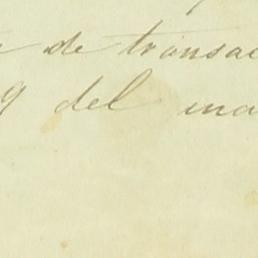 de transac
9 del ma